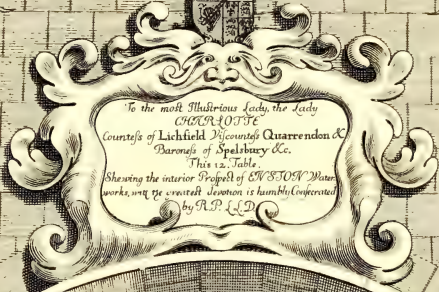 To the most Illustrious Lady, the Lady
CHARLOTTE
Countess of Lichfield Viscountess Quarrendon &
Baroness of Spelsbury &c.
This 12. Table.
Shewing the interior Prospect of ENSTON Water-
works, with ye greatest devotion is humbly Consecrated
by R.P. L.L.D.